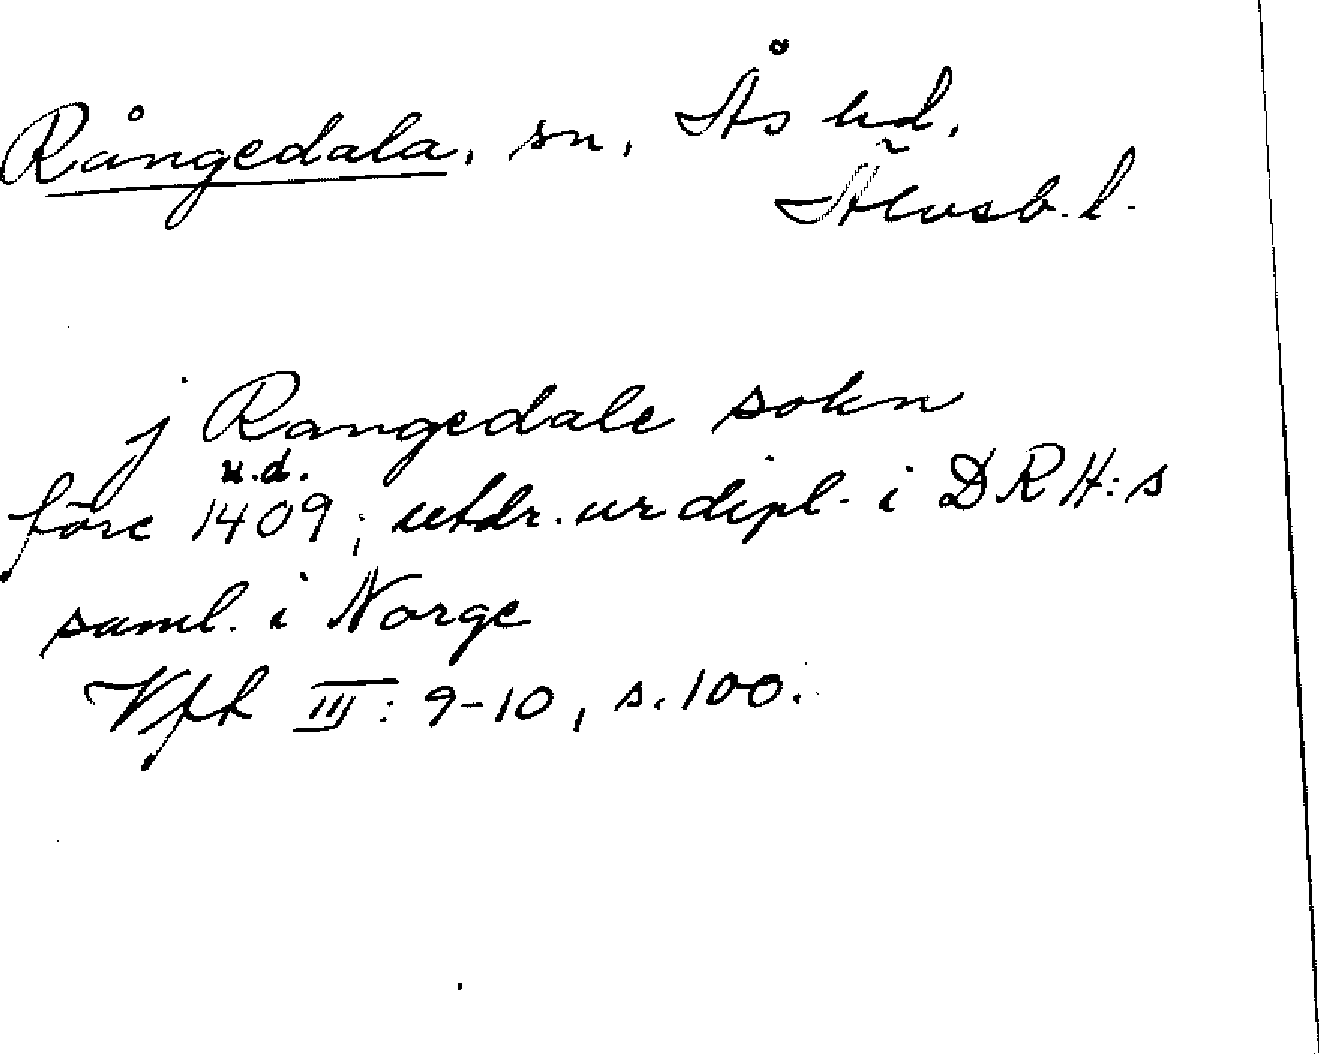 Rångedala, sn, Ås hd,
Älvsb. l.
j Rangedale sokn
u.d.
före 1409; utdr. ur dipl. i DRH:s
saml. i Norge
Vfh III: 9-10, s. 100.